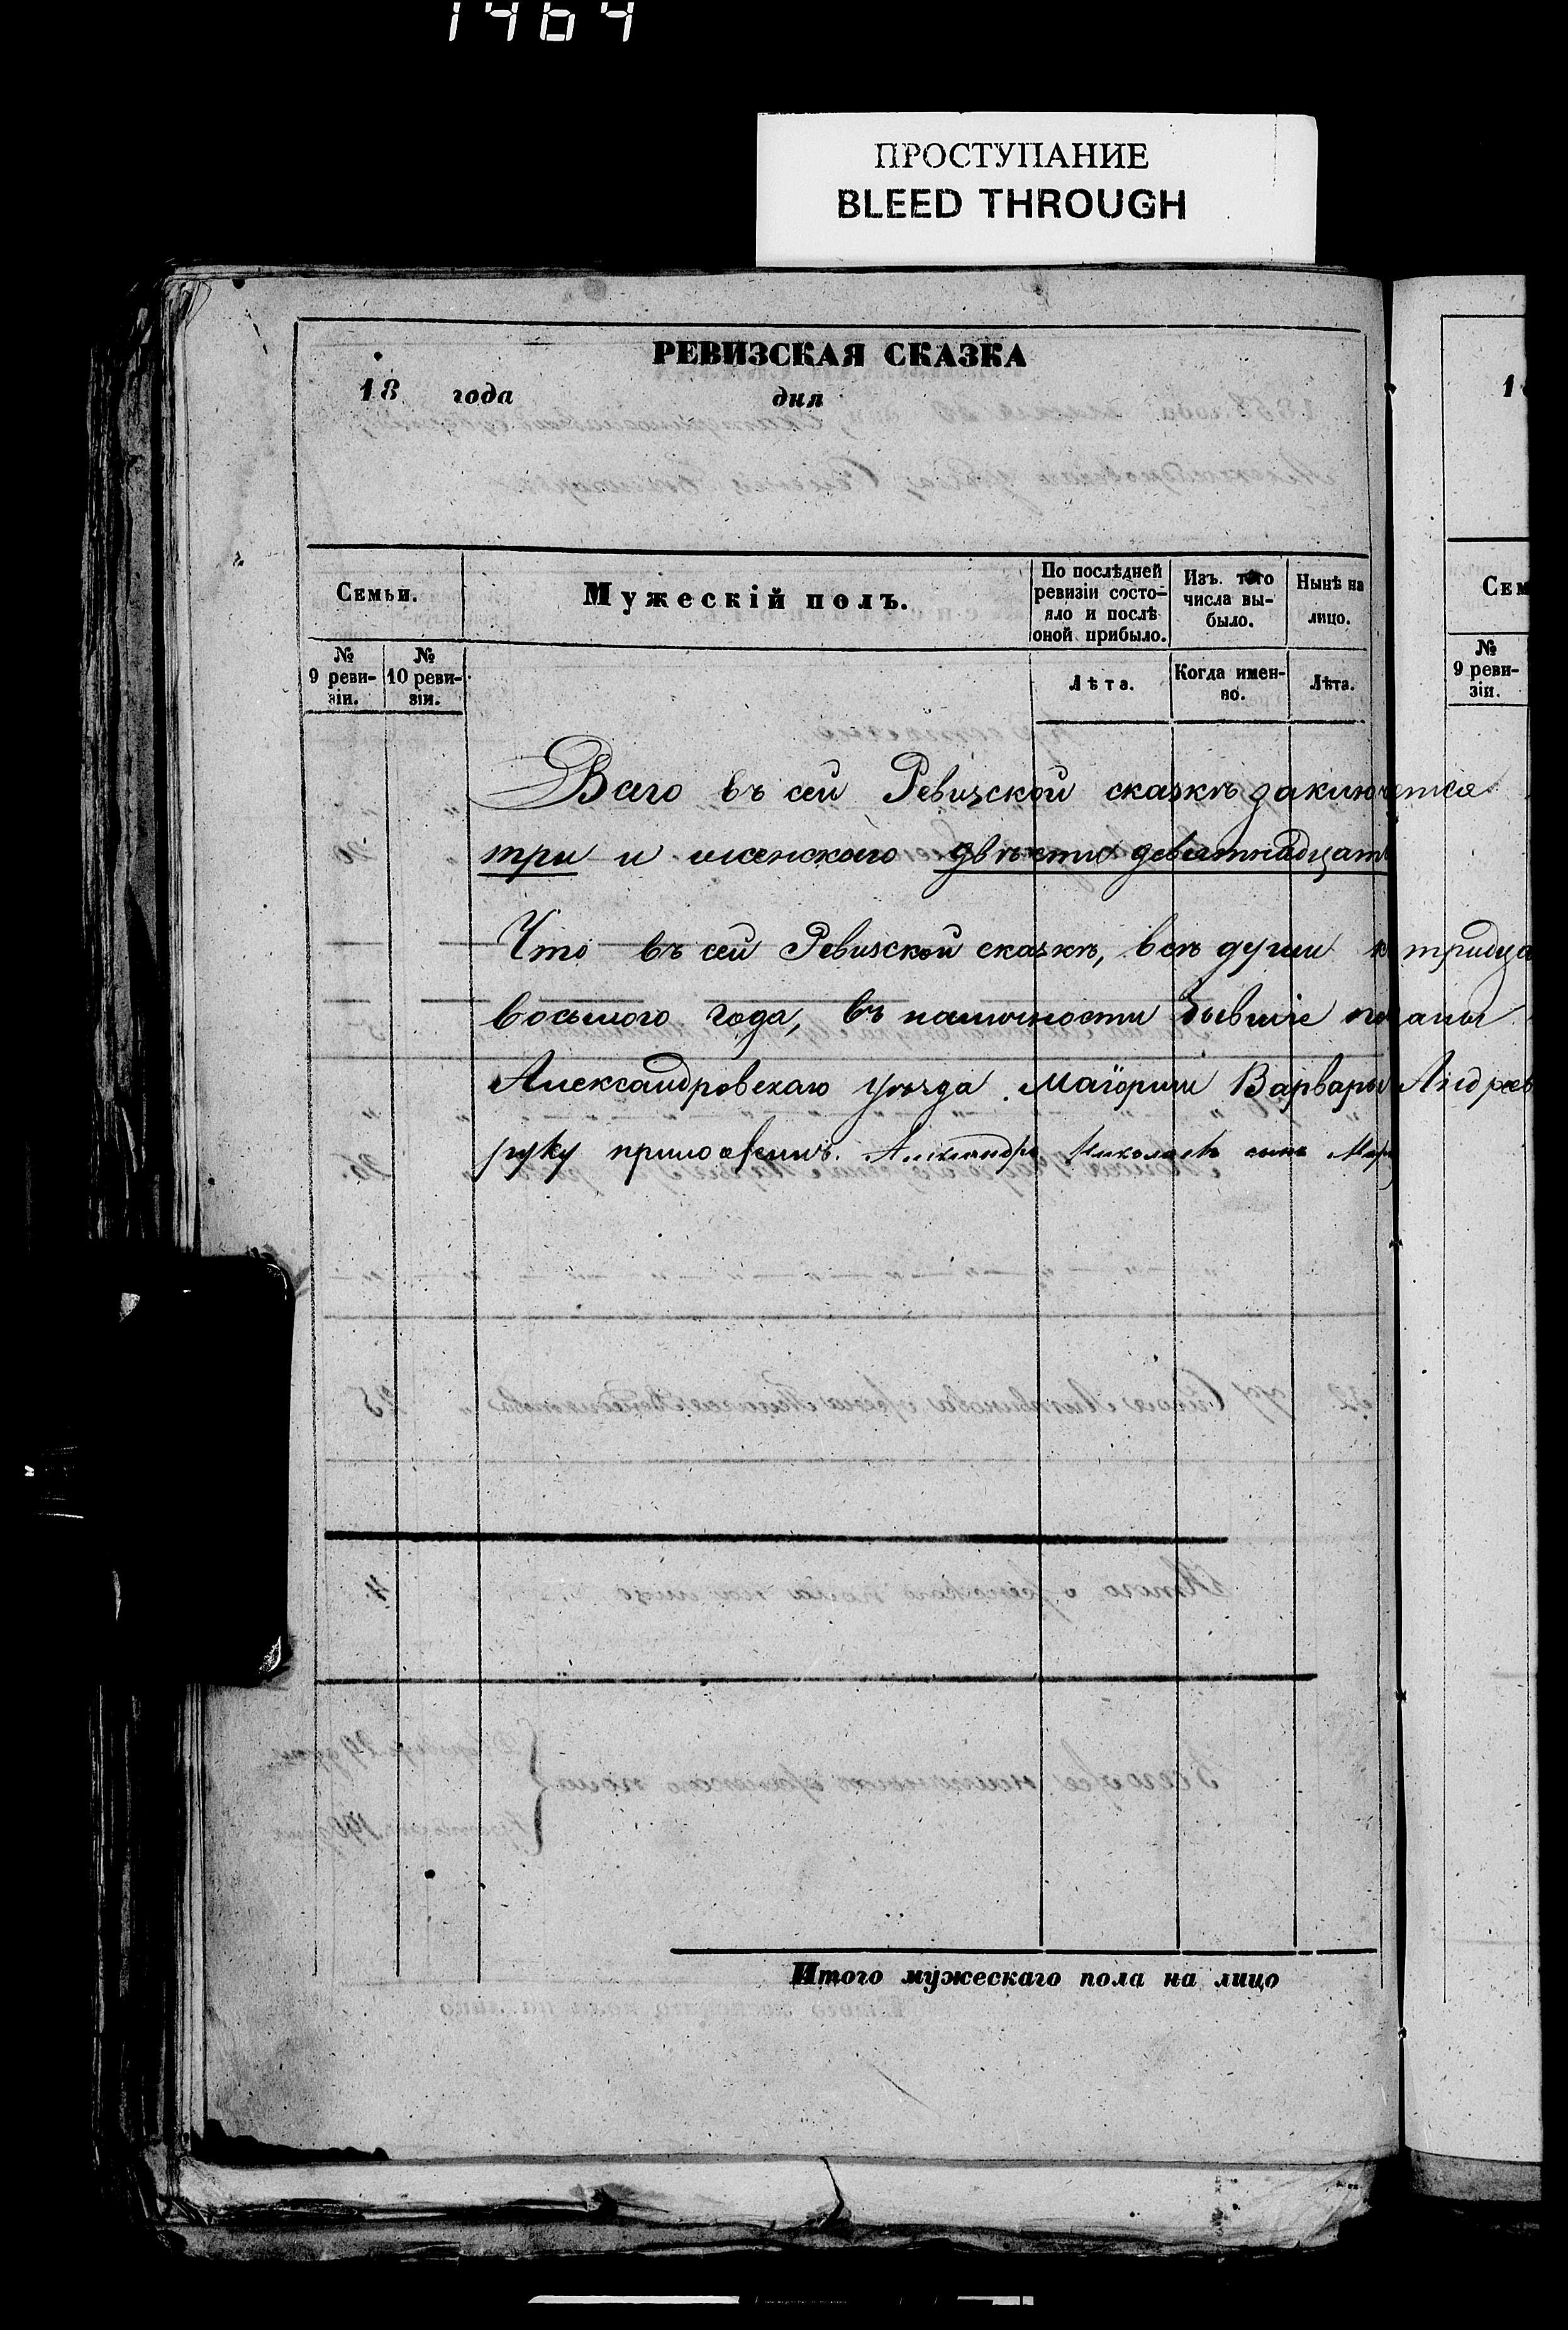 1464
ПРОСТУПАНИЕ
BLEED THROUGH
РЕВИЗСКАЯ СКАЗКА
18 года дня
Семьи.
Мужескій полъ.
По послѣдней ревизіи состояло и послѣ оной прибыло.
Изъ того числа выбыло.
Нынѣ на лицо.
№ 9 ревизіи.
№ 10 ревизіи.
Лѣта.
Когда именно.
Лѣта.
Всего въ сей Ревизской сказкѣ заключается
три и женскаго двѣсти девятнадцать
Что въ сей Ревизской сказкѣ, всѣ души к тридца
восьмого года, въ наличности бывшіе показаны
Александровскаго уѣзда Маіорши Варвары Андреев
руку приложилъ. Александръ Николаевъ сынъ Мар
Итого мужескаго пола на лицо
1
Сем
№ 9 ревизіи.